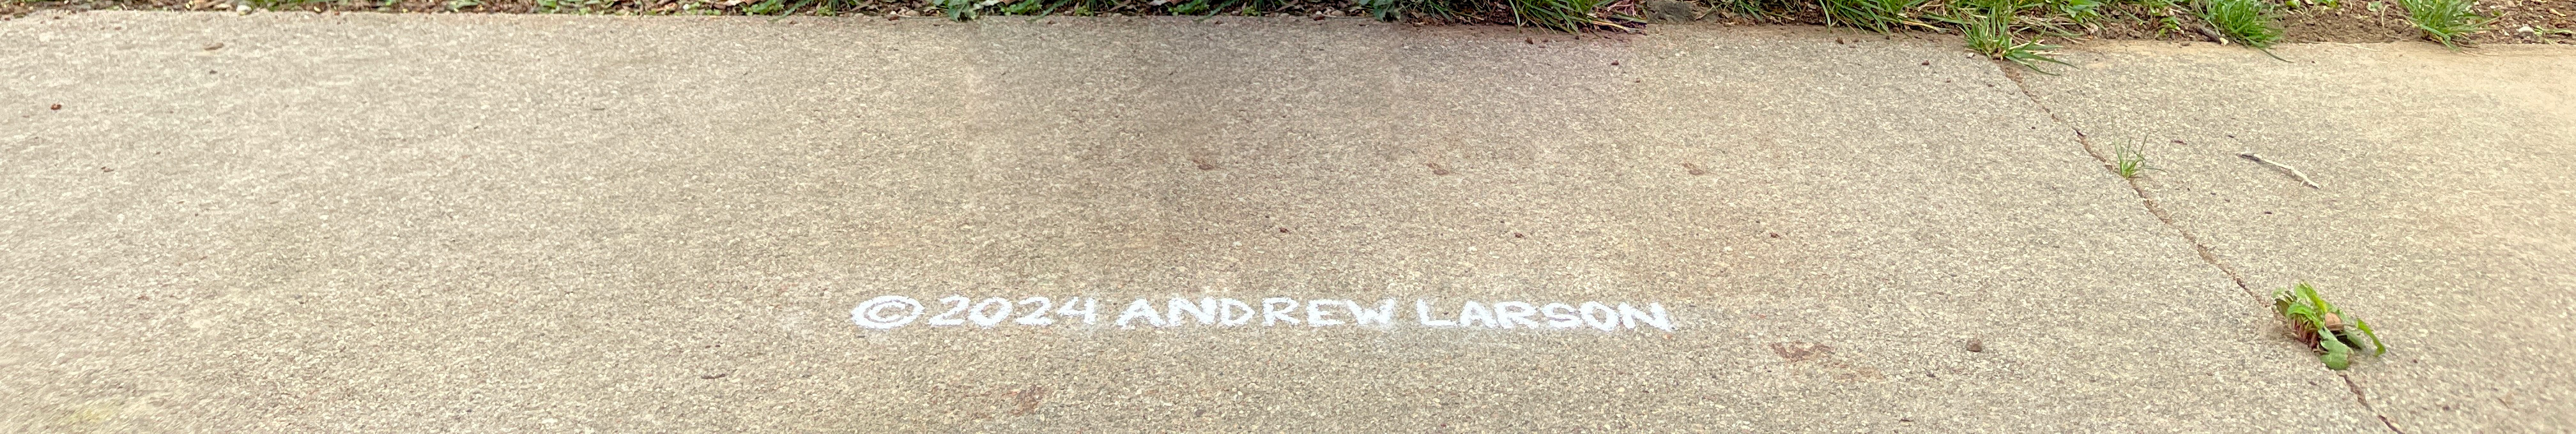 ©2024 ANDREW LARSON